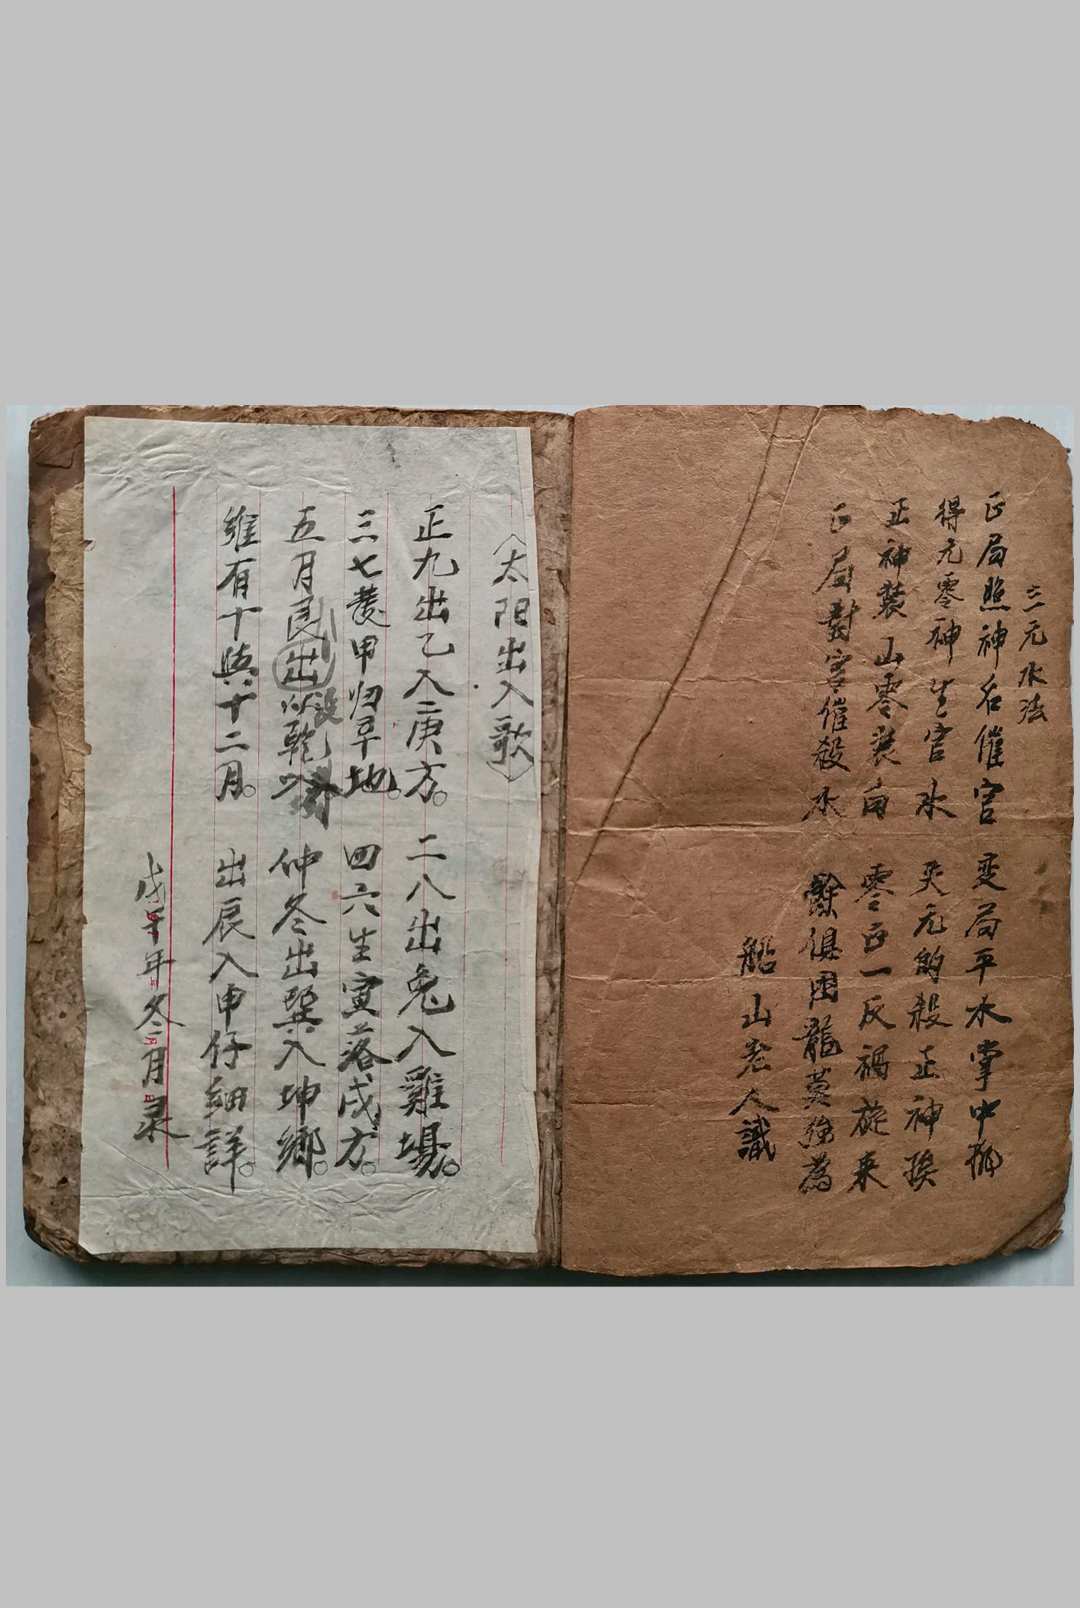 三元水法
正局照神名催官 变局平水掌中孤
得元零神生官水 失元的殺正神挨
正神装山零装向 零正一反禍旋来
正局對宮催殺水 餘俱囚龍莫強為
船山老人識
(太阳出入歌)
正九出乙入庚方。二八出兔入雞場。
三七發甲归辛地。四六生寅落戌方。
五月艮出以没乾 仲冬出巽入坤鄉。
維有十與十二月。出辰入申仔細詳。
戊午年冬月录